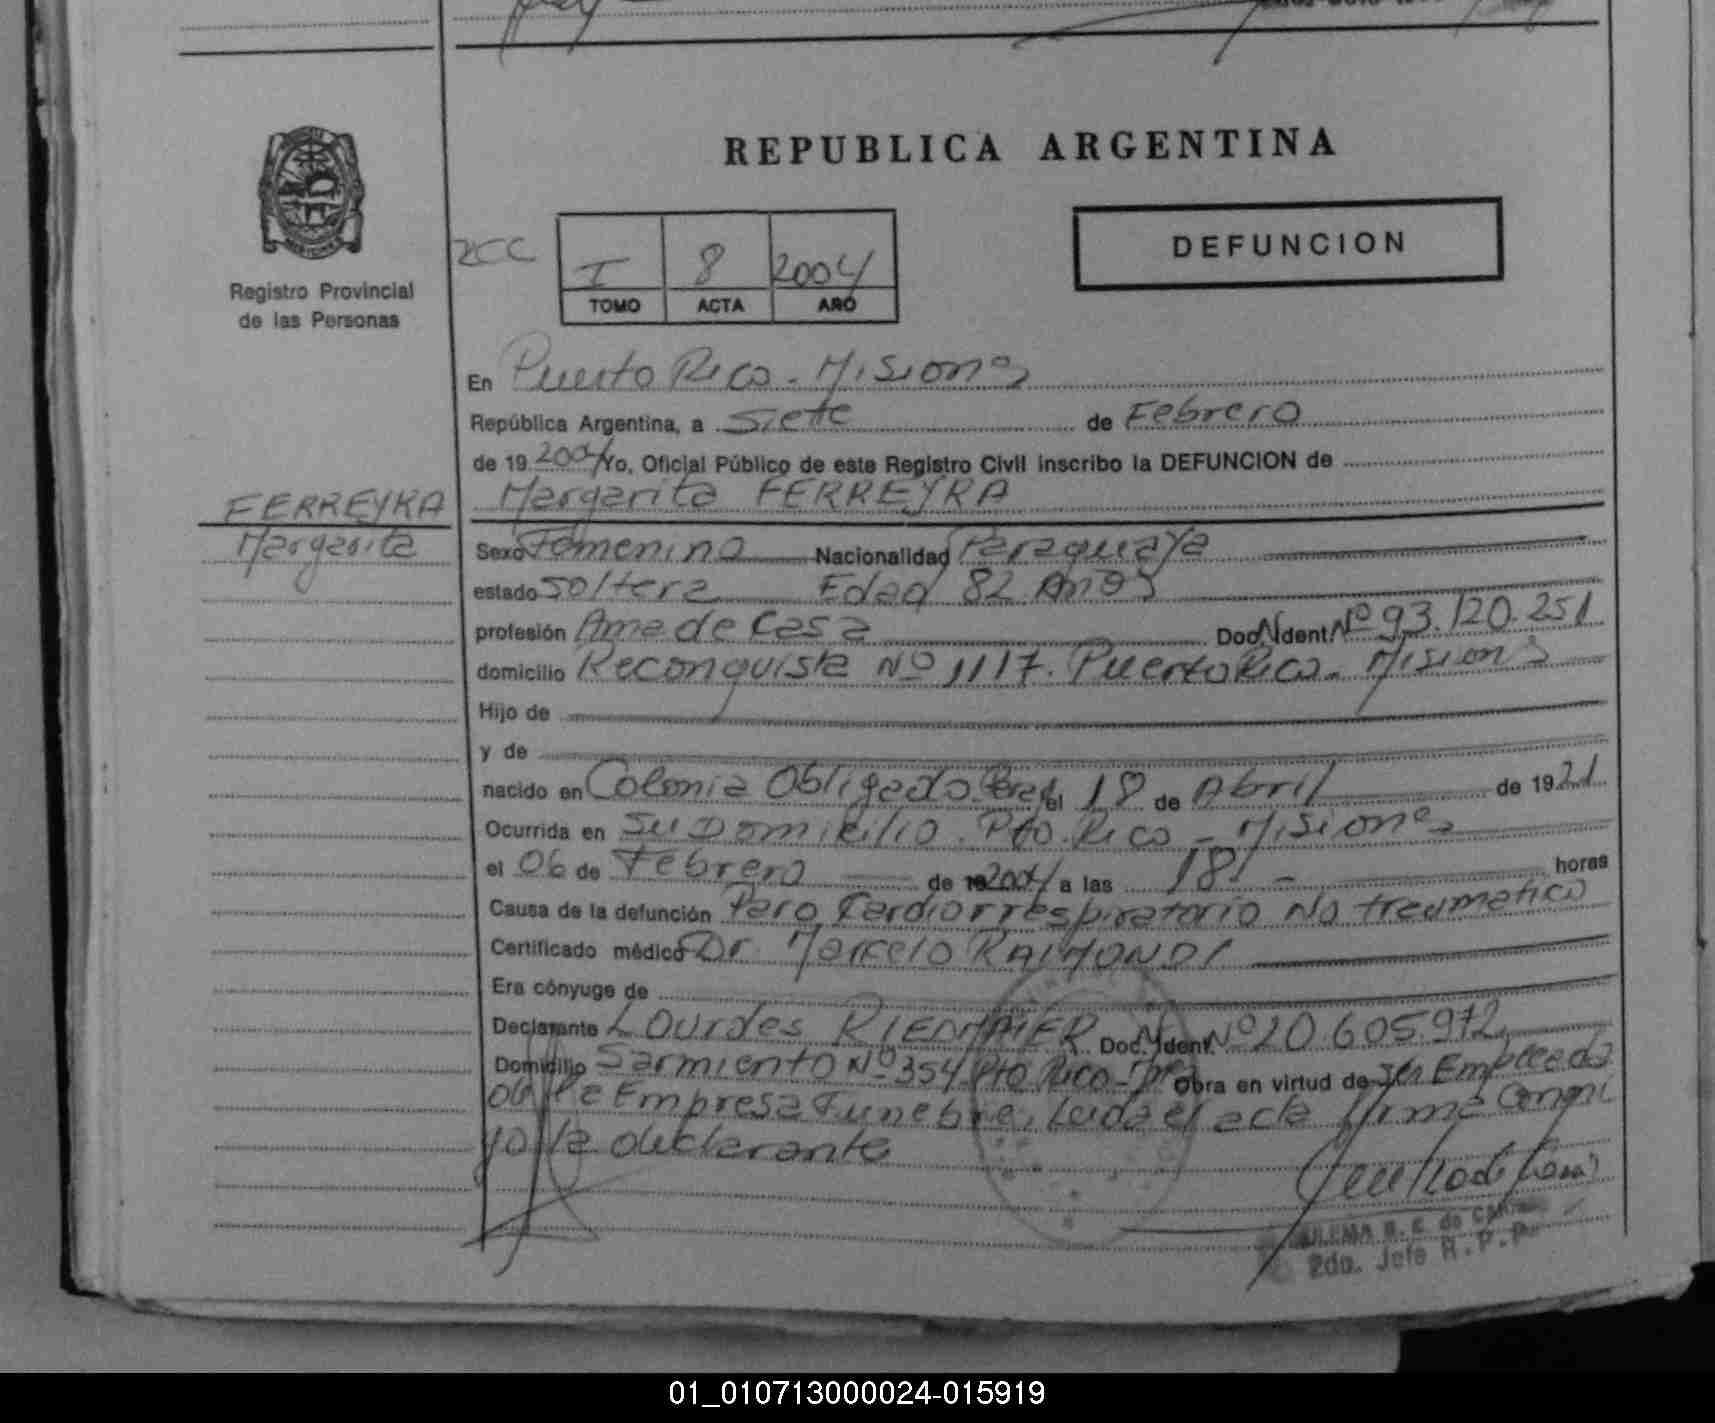 REPUBLICA ARGENTINA
Registro Provincial
de las Personas
2CC
I 8 2004
TOMO ACTA AÑO
DEFUNCION
En Puerto Rico - Misiones
República Argentina, a Siete de Febrero
de 19 2004 Yo, Oficial Público de este Registro Civil inscribo la DEFUNCION de
Margarita FERREYRA
FERREYRA
Margarita
Sexo Femenino Nacionalidad Paraguaya
estado Soltera Edad 82 Años
profesión Ama de Casa Doc. Ident. Nº 93.120.251
domicilio Reconquista Nº 1117. Puerto Rico - Misiones
Hijo de
y de
nacido en Colonia Obligado el 18 de Abril de 1921
Ocurrida en Su Domicilio. Pto. Rico - Misiones
el 06 de Febrero de 2004 a las 18 - horas
Causa de la defunción Paro Cardiorrespiratorio No traumatico
Certificado médico Dr. Marcelo RAIMONDI
Era cónyuge de
Declarante Lourdes Doc. Ident. Nº 20.605.972
Domicilio Sarmiento Nº 354 Pto Rico - Obra en virtud de ser Empleada
de la Empresa Funebre, Leida el acta firma conmi
go la declarante
2do. Jefe R.P.P.
01_010713000024-015919